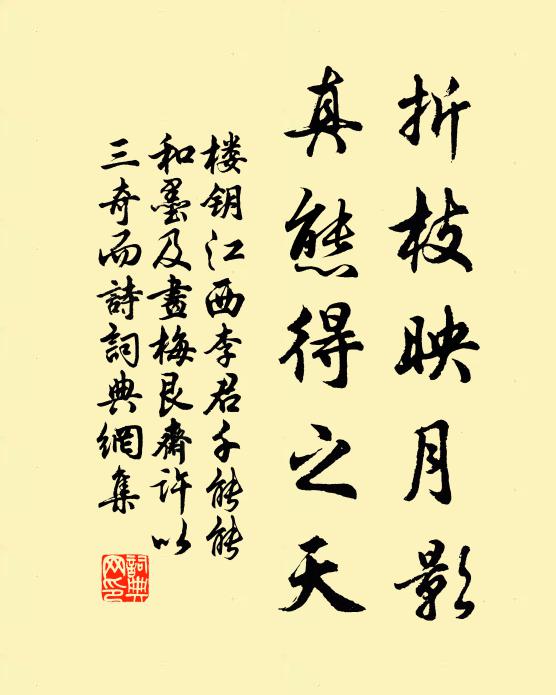 折枝映月影
真態得之天
楼钥江西李君千能能
和墨及畫梅艮齋許以
三奇而詩詞典網集
詞典网印